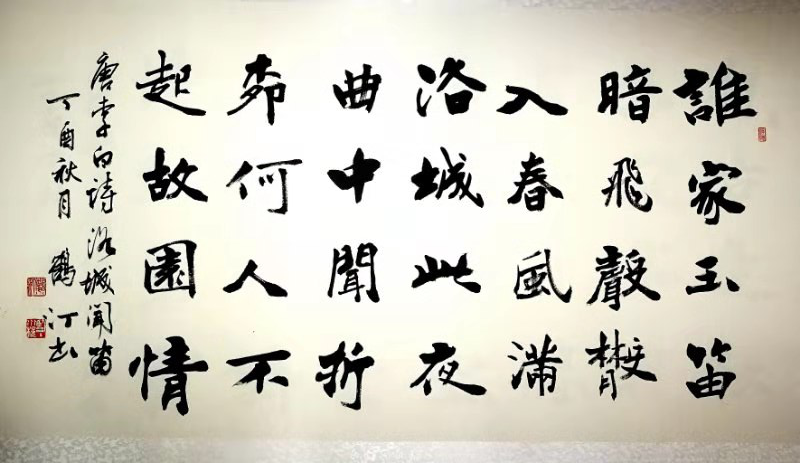 誰家玉笛
暗飛聲散
入春風滿
洛城此夜
曲中聞折
柳何人不
起故園情
唐李白詩洛城聞笛
丁酉秋月鶴汀书